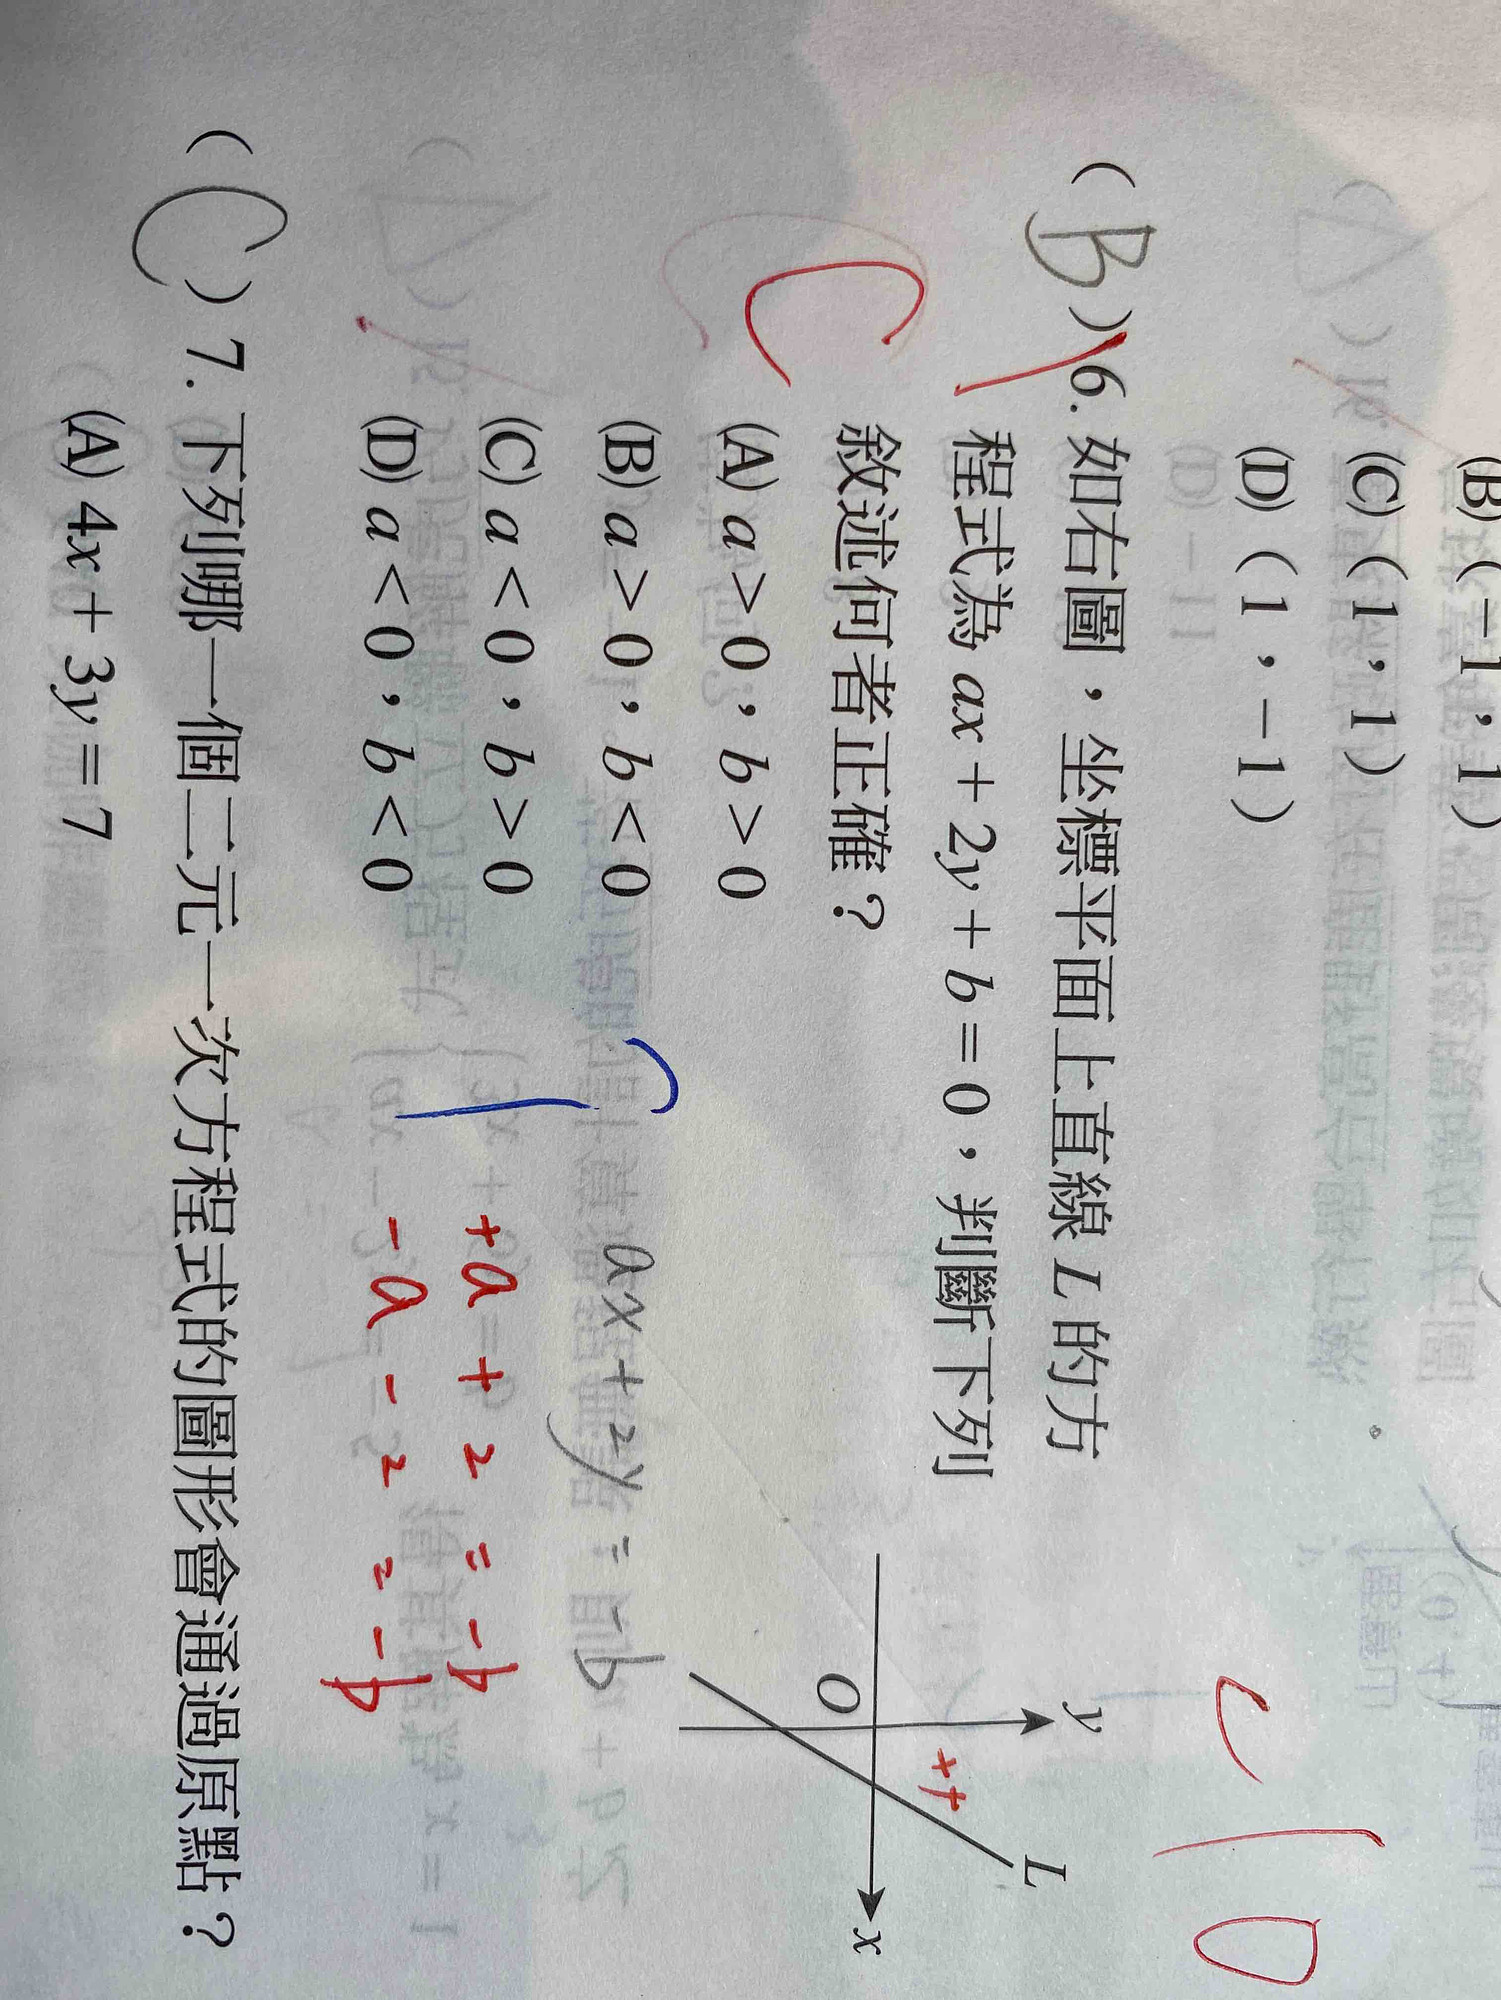 (B)(-1,1)
(C)(1,1)
(D)(1,-1)
(B)6.如右圖,坐標平面上直線 L 的方
程式為 ax+2y+b=0,判斷下列
敘述何者正確?
C
(A) a>0,b>0
(B) a>0,b<0
(C) a<0,b>0
(D) a<0,b<0
y
L
O
x
++
ax+2y=-b
+a+2=-b
-a-2=-b
(C)7.下列哪一個二元一次方程式的圖形會通過原點?
(A) 4x+3y=7